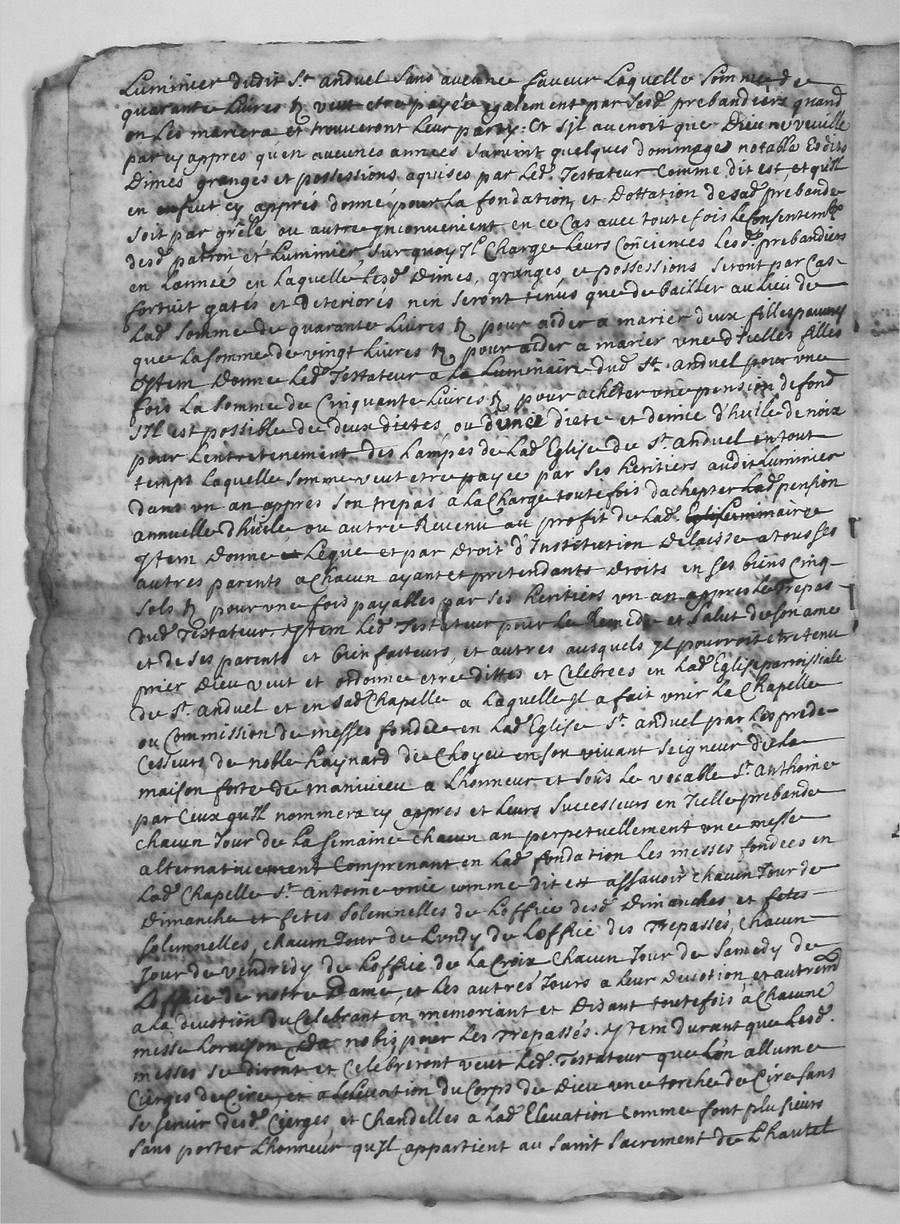 Luminier dudit St. anduel sans aucune faveur Laquelle Somme de
quarante Livres veut etre payée egalement par Sesd. prebandiers quand
on Les mariera et trouveront Leur party: Et s'jl avenoit que Dieu ne veuille
par cy appres qu'en aucunes années survint quelques dommages notable Esdits
Dimes granges et possessions aquises par Led. Testateur Comme dit est, et qu'jl
en cy appres donné pour La fondation, et Dottation de sad. prebande
soit par grêle ou autre jnconvenient, en ce Cas avec toute fois Le Consentemt.
desd. patron et Luminier, sur quoy jl Charge Leurs Conciences Lesd. prebandiers
en L'année en Laquelle Lesd. Dimes, granges et possessions, seront par Cas-
fortuit gatés et deteriorés n'en seront tenus que de bailler au Lieu de
Lad. Somme de quarante Livres pour aider a marier deux filles pauvres
que La somme de vingt Livres pour aider a marier une d'jcelles filles
Jtem Donne Led. Testateur a Le Luminaire dud. St. anduel pour une
fois La Somme de Cinquante Livres pour achêter une pension de fond
s'jl est possible de deux dietes, ou d'une diete et demie d'huile de noix
pour L'entretenement des Lampes de Lad. Eglise de St. anduel en tout
temps Laquelle somme veut etre payee par ses heritiers audit Luminier
dans un an appres son trepas a La Charge toutefois d'achepter Lad. pension
annuelle d'huile, ou autre Revenu au profit de Lad. Luminaire
Jtem Donne Legue et par Droit d'Institution Delaisse a tous ses
autres parents a Chacun ayant et pretendants droits en ses biens Cinq-
Sols pour une fois payables par ses heritiers un an appres Le Trepas
dud. Testateur. Jtem Led. Testateur pour Le Remede et Salut de son ame
et de ses parents et bien facteurs, et autres ausquels jl pourroit etre tenu
prier Dieu veut et ordonne etre dittes et Celebrées en Lad. Eglise parroissiale
de St. anduel et en sad. Chapelle a Laquelle jl a fait unir Le Chapelle
ou Commission de messes fondée en Lad. Eglise St. anduel par Les préde-
Cesseurs de noble haynard de Choyeu en son vivant seigneur de La
maison forte de manivieu a L'honneur et sous Le vocable St. anthoine
par Ceux qu'jl nommera cy appres et Leurs Successeurs en Jcelle prebande
chacun Jour de La semaine chacun an perpetuellement une messe
alternativement Comprenant en Lad. fondation Les messes fondées en
Lad. Chapelle St. Antoine unie comme dit est assavoir Chacun Jour de
Dimanche et fetes Solemnelles de L'office desd. Dimanches et fetes
solemnelles, chacun Jour de Lundy de L'office des Trepassés, Chacun
Jour de vendredy de L'office de La Croix Chacun Jour de Samedy de
L'office de notre Dame, et Les autres Jours a leur Devotion et autremt.
a La devotion du Celebrant en memoriant et Disant toutefois à chacune
messe L'oraison nobis pour Les Trepassés. Jtem durant que Lesd.
messes se diront et Celébreront veut Led. Testateur que L'on allume
Cierges de Cire, et a L'elevation du Corps de Dieu une torche de Cire sans
se servir desd. Cierges et Chandelles a Lad. Elevation comme font plusieurs
sans porter L'honneur qu'jl appartient au saint Sacrement de L'hautel